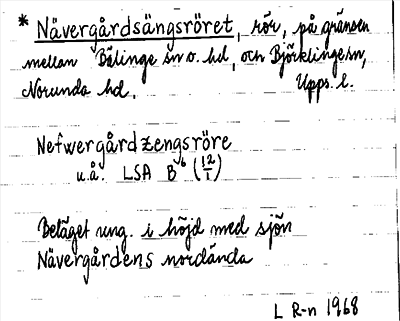 * Nävergårdsängsröret, rör, på gränsen
mellan Bälinge sn o. hd, och Björklinge sn,
Norunda hd. Upps. l.
Nefwergårdzengsröre
u.å. LSA B⁶ (12/1)
Beläget ung. i höjd med sjön
Nävergårdens nordända
L R-n 1968